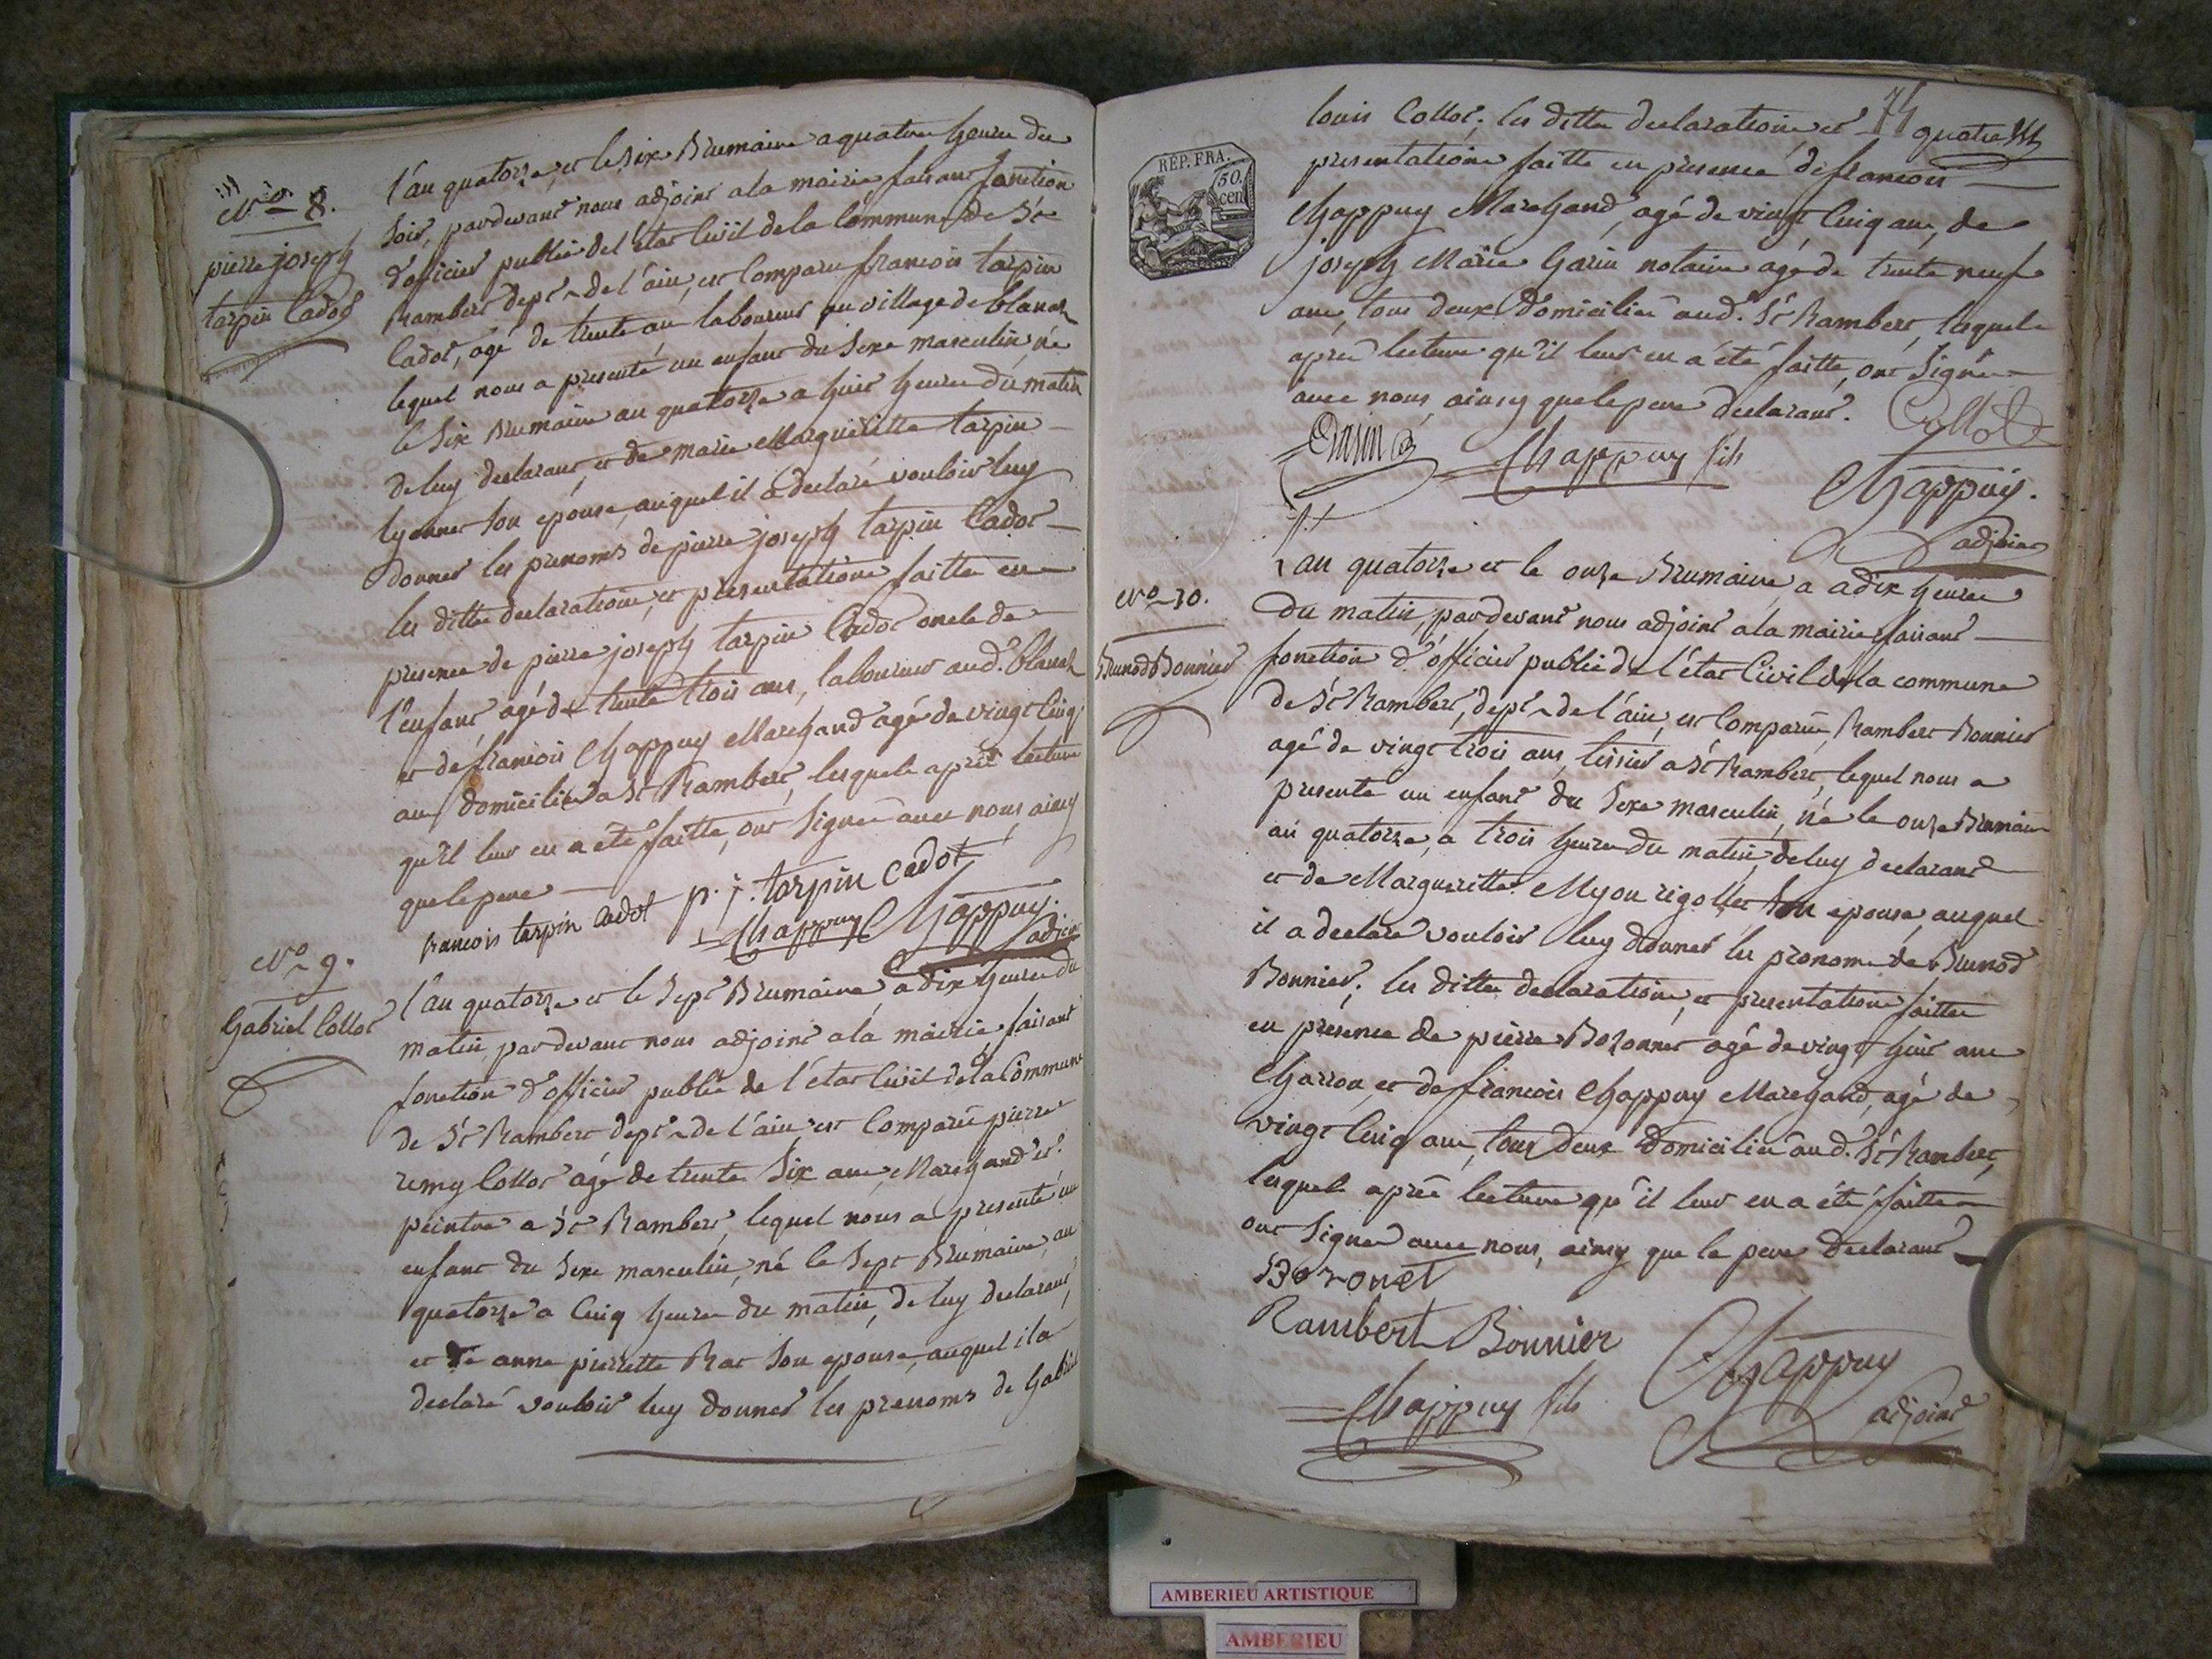 No 8.
pierre joseph
tarpin Cadot
l'an quatorze et le six Brumaire a quatre heures du
soir, pardevant nous adjoint a la mairie faisant fonction
d'officier public de l'état Civil de la Commune de St
Rambert dept de l'ain, est Comparu francois tarpin
Cadot, agé de trente ans laboureur au village de blanas
lequel nous a presenté un enfant du sexe masculin, né
le six Brumaire an quatorze a huit heures du matin
de luy declarant, et de marie Margueritte tarpin
lyonnet son epouse, auquel il a declaré vouloir luy
donner les prenoms de pierre joseph tarpin Cadot
les dittes declarations, et presentations faitte en
presence de pierre joseph tarpin Cadot oncle de
l'enfant agé de trente trois ans, laboureur aud. blanas
et de francois Chappuy Marchand agé de vingt Cinq
ans domiciliés a St Rambert, lesquels après lecture
qu'il leur en a été faitte, ont signés avec nous ainsy
que le pere
francois tarpin cadot p. j. tarpin cadot
Chappuy Chappuy.
adjoint
No 9.
Gabriel Collot
l'an quatorze et le sept Brumaire, a dix heures du
matin, pardevant nous adjoint a la mairie, faisant
fonction d'officier public de l'état Civil de la Commune
de St Rambert dept de l'ain est Comparu pierre
remy Collot agé de trente six ans, Marchand et
peintre a St Rambert, lequel nous a presenté un
enfant du sexe masculin, né le sept Brumaire, an
quatorze a Cinq heures du matin, de luy declarant,
et de anne pierrette Rat son epouse, auquel il a
declaré vouloir luy donner les prenoms de Gabriel
74 quatre
RÉP. FRA.
50
cen
louis Collot; les dittes declarations et
presentations faitte en presence de francois
Chappuy Marchand, agé de vingt Cinq ans, de
joseph Marie Garin notaire agé de trente neuf
ans, tous deux domiciliés aud. St Rambert, lesquels
après lecture qu'il leur en a été faitte, ont signés
avec nous, ainsy que le pere declarant. Collot
Garin Chappuy fils
Chappuy.
adjoint
No 10.
Brunod Bonnier
L'an quatorze et le onze Brumaire, a dix heures
du matin, pardevant nous adjoint a la mairie faisant
fonction d'officier public de l'état Civil de la commune
de St Rambert, dept de l'ain, est Comparu, Rambert Bonnier
agé de vingt trois ans, tissier a St Rambert, lequel nous a
presenté un enfant du sexe masculin, né le onze Brumaire
an quatorze, a trois heures du matin, de luy declarant
et de Margueritte Myon rigollet son epouse, auquel
il a declaré vouloir luy donner les prenoms de Brunod
Bonnier; les dittes declarations, et presentations faittes
en presence de pierre Bozonnet agé de vingt huit ans
Charron, et de francois Chappuy Marchand, agé de
vingt Cinq ans, tous deux domiciliés aud. St Rambert,
lesquels après lecture qu'il leur en a été faitte
ont signés avec nous, ainsy que le pere declarant
Bozonet
Rambert Bonnier
Chappuy fils Chappuy
adjoint
AMBERIEU ARTISTIQUE
AMBERIEU